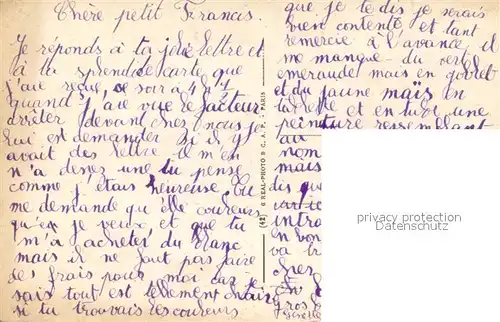 Chère petit Francis.
Je réponds à ta jolie lettre et
à ta splendide carte que
j'aie reçue ce soir a 4 h 1/4
quand j'aie vue le facteur
arrêter devant chez nous je
lui est demander si il y
avait des lettre il m'en
n'a donez une tu pense
comme j'étais heureuse. Tu
me demande qu'elle couleurs
qu'en je veux, et que tu
m'a achetes du blanc
mais il ne faut pas faire
de frais pour moi car je
sais tout est tellement chair
si tu trouvais les couleurs
(42) REAL-PHOTO C.A.P. - PARIS
que je te dis je serais
bien contente et tant
remercie à l'avance, il
me manque du vert
emeraude mais en godet
et du jaune mais en
et en tube une
peinture ressemblant
au
nom
mais
dis que
intro
en bon
va
chez
en
gros
privacy protection